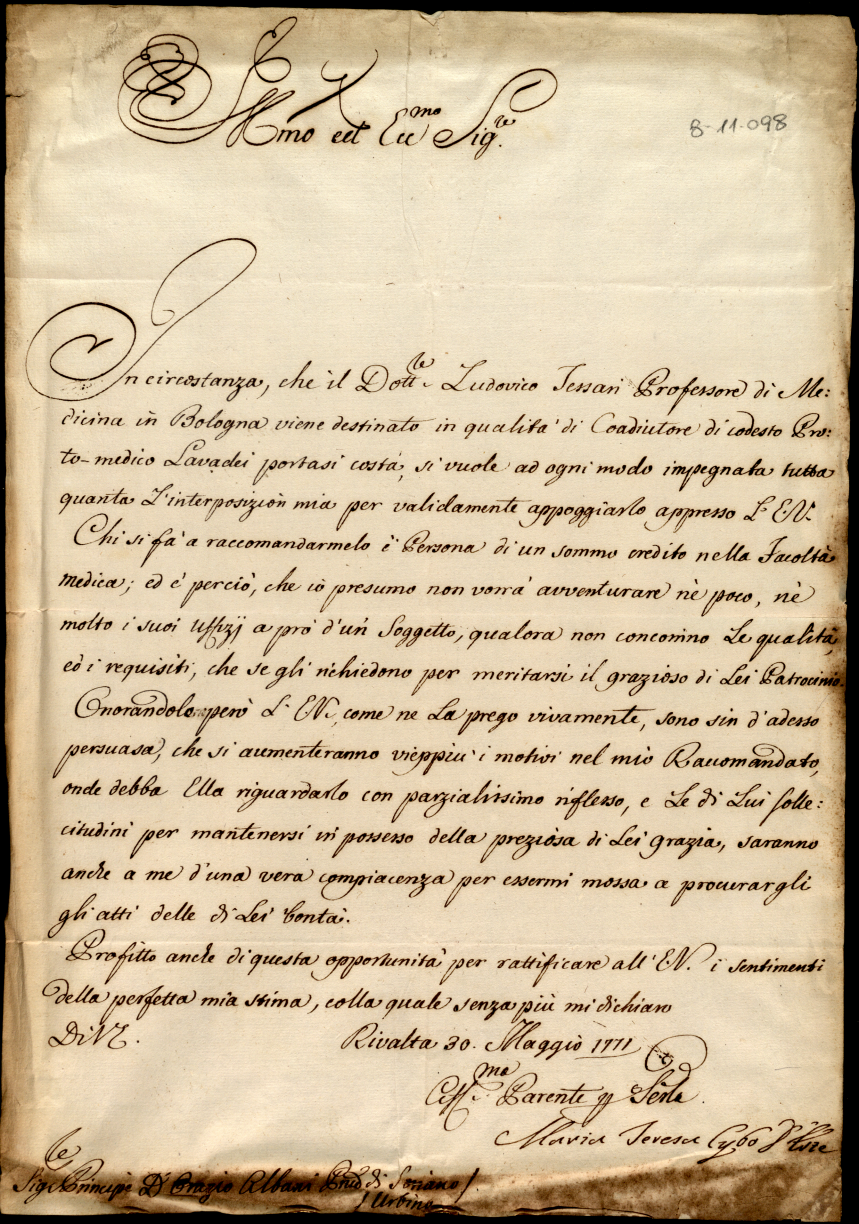 Ill:mo ed Ecc:mo Sig:re
8-11-098
In circostanza, che il Dott:re Ludovico Tessari Professore di Me:
dicina in Bologna viene destinato in qualità di Coadiutore di codesto Pro:
to-medico Lavadei portasi costà, si vuole ad ogni modo impegnata tutta
quanta L'interposizion mia per validamente appoggiarlo appresso L'E.V.
Chi si fà a raccomandarmelo è Persona di un sommo credito nella Facoltà
medica; ed è perciò, che io presumo non vorrà avventurare nè poco, nè
molto i suoi Uffizj a prò d'un Soggetto, qualora non concorrino Le qualità,
ed i requisiti, che se gli richiedono per meritarsi il grazioso di Lei Patrocinio.
Onorandolo però L'E.V., come ne La prego vivamente, sono sin d'adesso
persuasa, che si aumenteranno vieppiù i motivi nel mio Raccomandato,
onde debba Ella riguardarlo con parzialissimo riflesso, e Le di Lui solle:
citudini per mantenersi in possesso della preziosa di Lei grazia, saranno
anche a me d'una vera compiacenza per essermi mossa a procurargli
gli atti delle di Lei bontà.
Profitto anche di questa opportunità per rattificare all'E.V. i sentimenti
della perfetta mia stima, colla quale senza più mi dichiaro
Di V.E.
Rivalta 30. Maggio 1771
Aff:ma Parente p Serla
Maria Teresa Cybo d'Este
Sig:re Principe D. Orazio Albani di Soriano /
/ Urbino